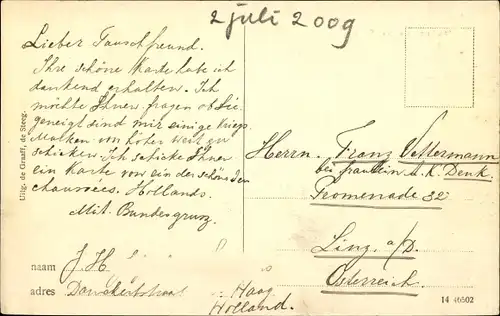 2 juli 2009
Lieber Tauschfreund.
Ihre schöne Karte habe ich
dankend erhalten. Ich
möchte Ihnen fragen ob Sie
geneigt sind mir einige Kriegs
Marken von höher Wert zu
schicken. Ich schicke Ihnen
ein Karte von ein der schönsten
chaussees. Hollands.
Mit Bundesgruss.
Uitg. de Graaff, de Steeg.
Herrn. Franz Vettermann
bei fraulein A. K. Denk.
Promenade 32
Linz a/D.
Österreich.
naam J. H.
adres Danckertstraat Haag
Holland.
14 46502